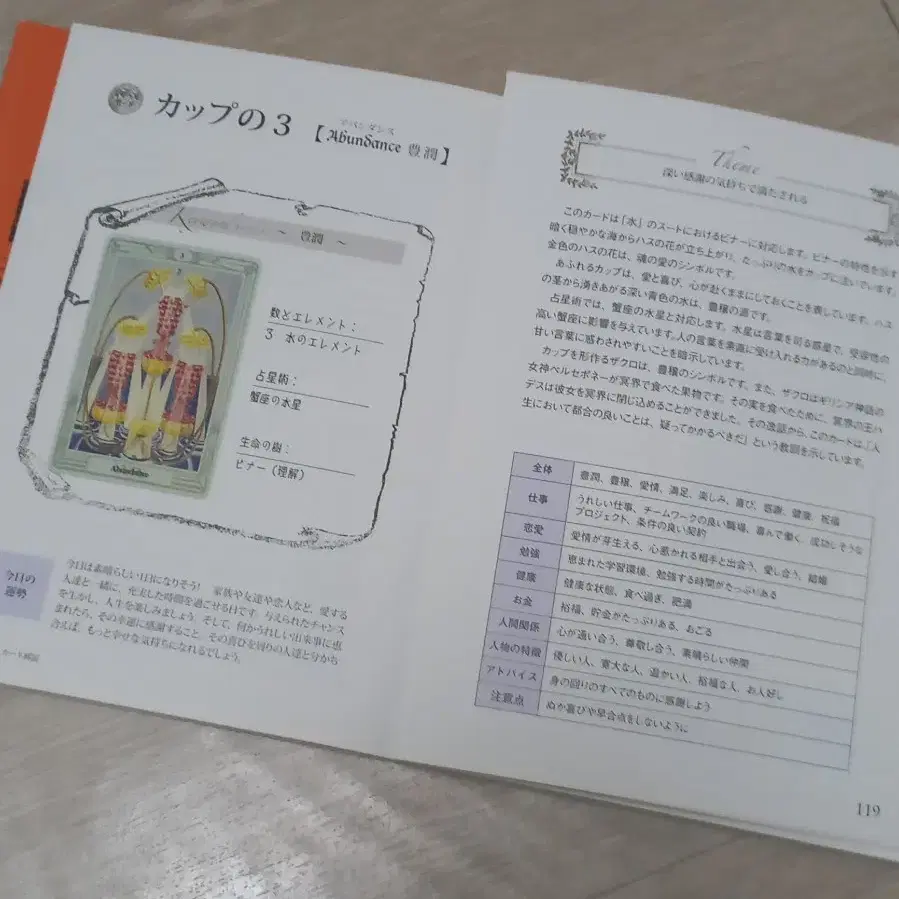 カップの3
アバンダンス
【Abundance 豊潤】
～ 豊潤 ～
数とエレメント：
3 水のエレメント
占星術：
蟹座の水星
生命の樹：
ビナー（理解）
Abundance
今日の
運勢
今日は素晴らしい1日になりそう！ 家族や友達や恋人など、愛する
人達と一緒に、充実した時間を過ごせる日です。与えられたチャンス
を生かし、人生を楽しみましょう。そして、何かうれしい出来事に恵
まれたら、その幸運に感謝すること。その喜びを周りの人達と分かち
合えば、もっと幸せな気持ちになれるでしょう。
カード解説
Theme
深い感謝の気持ちで満たされる
このカードは「水」のスートにおけるビナーに対応します。ビナーの特徴を示す
暗く穏やかな海からハスの花が立ち上がり、たっぷりの水をカップに注いでいます。
金色のハスの花は、魂の愛のシンボルです。
あふれるカップは、愛と喜び、心が赴くままにしておくことを表しています。ハス
の茎から湧きあがる深い青色の水は、豊穣の源です。
占星術では、蟹座の水星と対応します。水星は言葉を司る惑星で、受容性の
高い蟹座に影響を与えています。人の言葉を素直に受け入れる力があるのと同時に、
甘い言葉に惑わされやすいことを暗示しています。
カップを形作るザクロは、豊穣のシンボルです。また、ザクロはギリシア神話の
女神ペルセポネーが冥界で食べた果物です。その実を食べたために、冥界の王ハ
デスは彼女を冥界に閉じ込めることができました。その逸話から、このカードは「人
生において都合の良いことは、疑ってかかるべきだ」という教訓を示しています。
全体 豊潤、豊穣、愛情、満足、楽しみ、喜び、感謝、健康、祝福
仕事 うれしい仕事、チームワークの良い職場、喜んで働く、成功しそうな
プロジェクト、条件の良い契約
恋愛 愛情が芽生える、心惹かれる相手と出会う、愛し合う、結婚
勉強 恵まれた学習環境、勉強する時間がたっぷりある
健康 健康な状態、食べ過ぎ、肥満
お金 裕福、貯金がたっぷりある、おごる
人間関係 心が通い合う、尊敬し合う、素晴らしい仲間
人物の特徴 優しい人、寛大な人、温かい人、裕福な人、お人好し
アドバイス 身の回りのすべてのものに感謝しよう
注意点 ぬか喜びや早合点をしないように
119